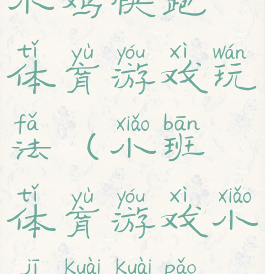 小鸡快跑
tǐ yù yóu xì wán
体育游戏玩
fǎ xiǎo bān
法（小班
tǐ yù yóu xì xiǎo
体育游戏小
jī kuài kuài pǎo